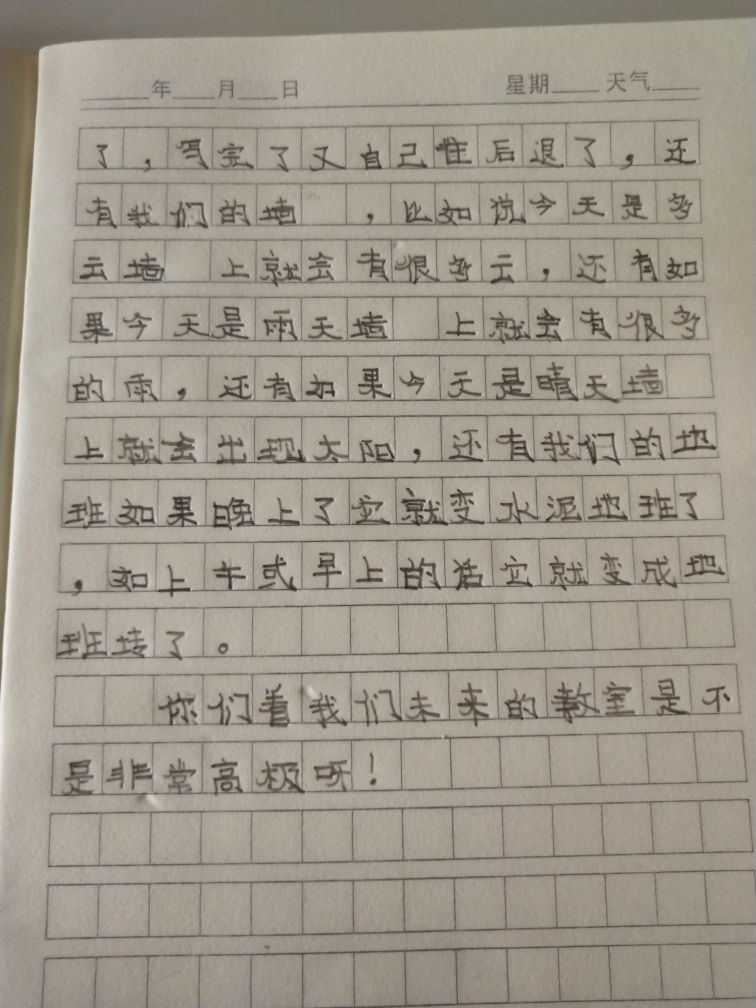 年 月 日 星期 天气
了，写完了又自己往后退了，还
有我们的墙 ，比如说今天是多
云墙 上就会有很多云，还有如
果今天是雨天墙 上就会有很多
的雨，还有如果今天是晴天墙
上就会出现太阳，还有我们的地
班如果晚上了它就变水泥地班了
，如上午或早上的话它就变成地
班砖了。
你们看我们未来的教室是不
是非常高极呀！